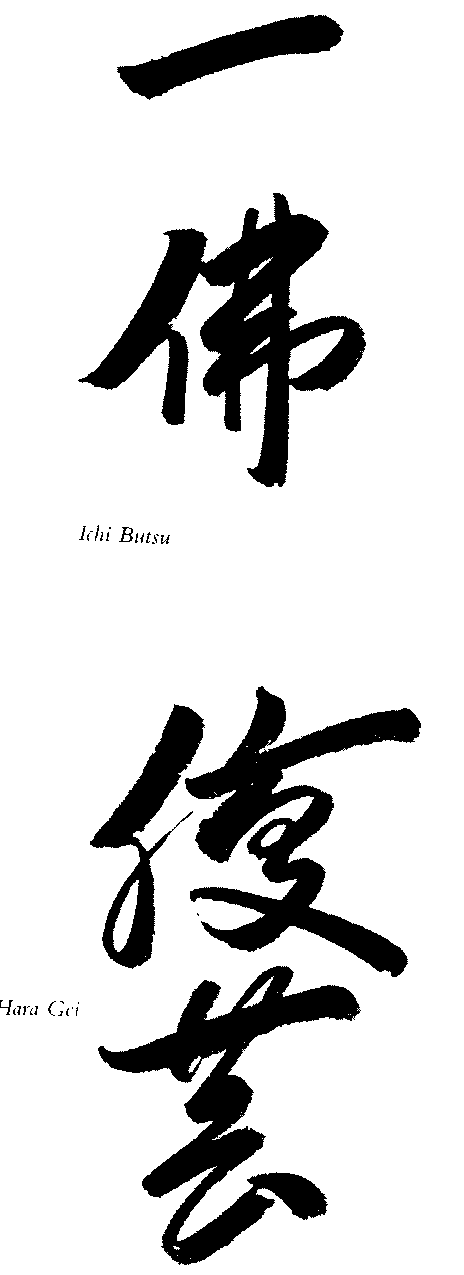 一佛
Ichi Butsu
腹芸
Hara Gei